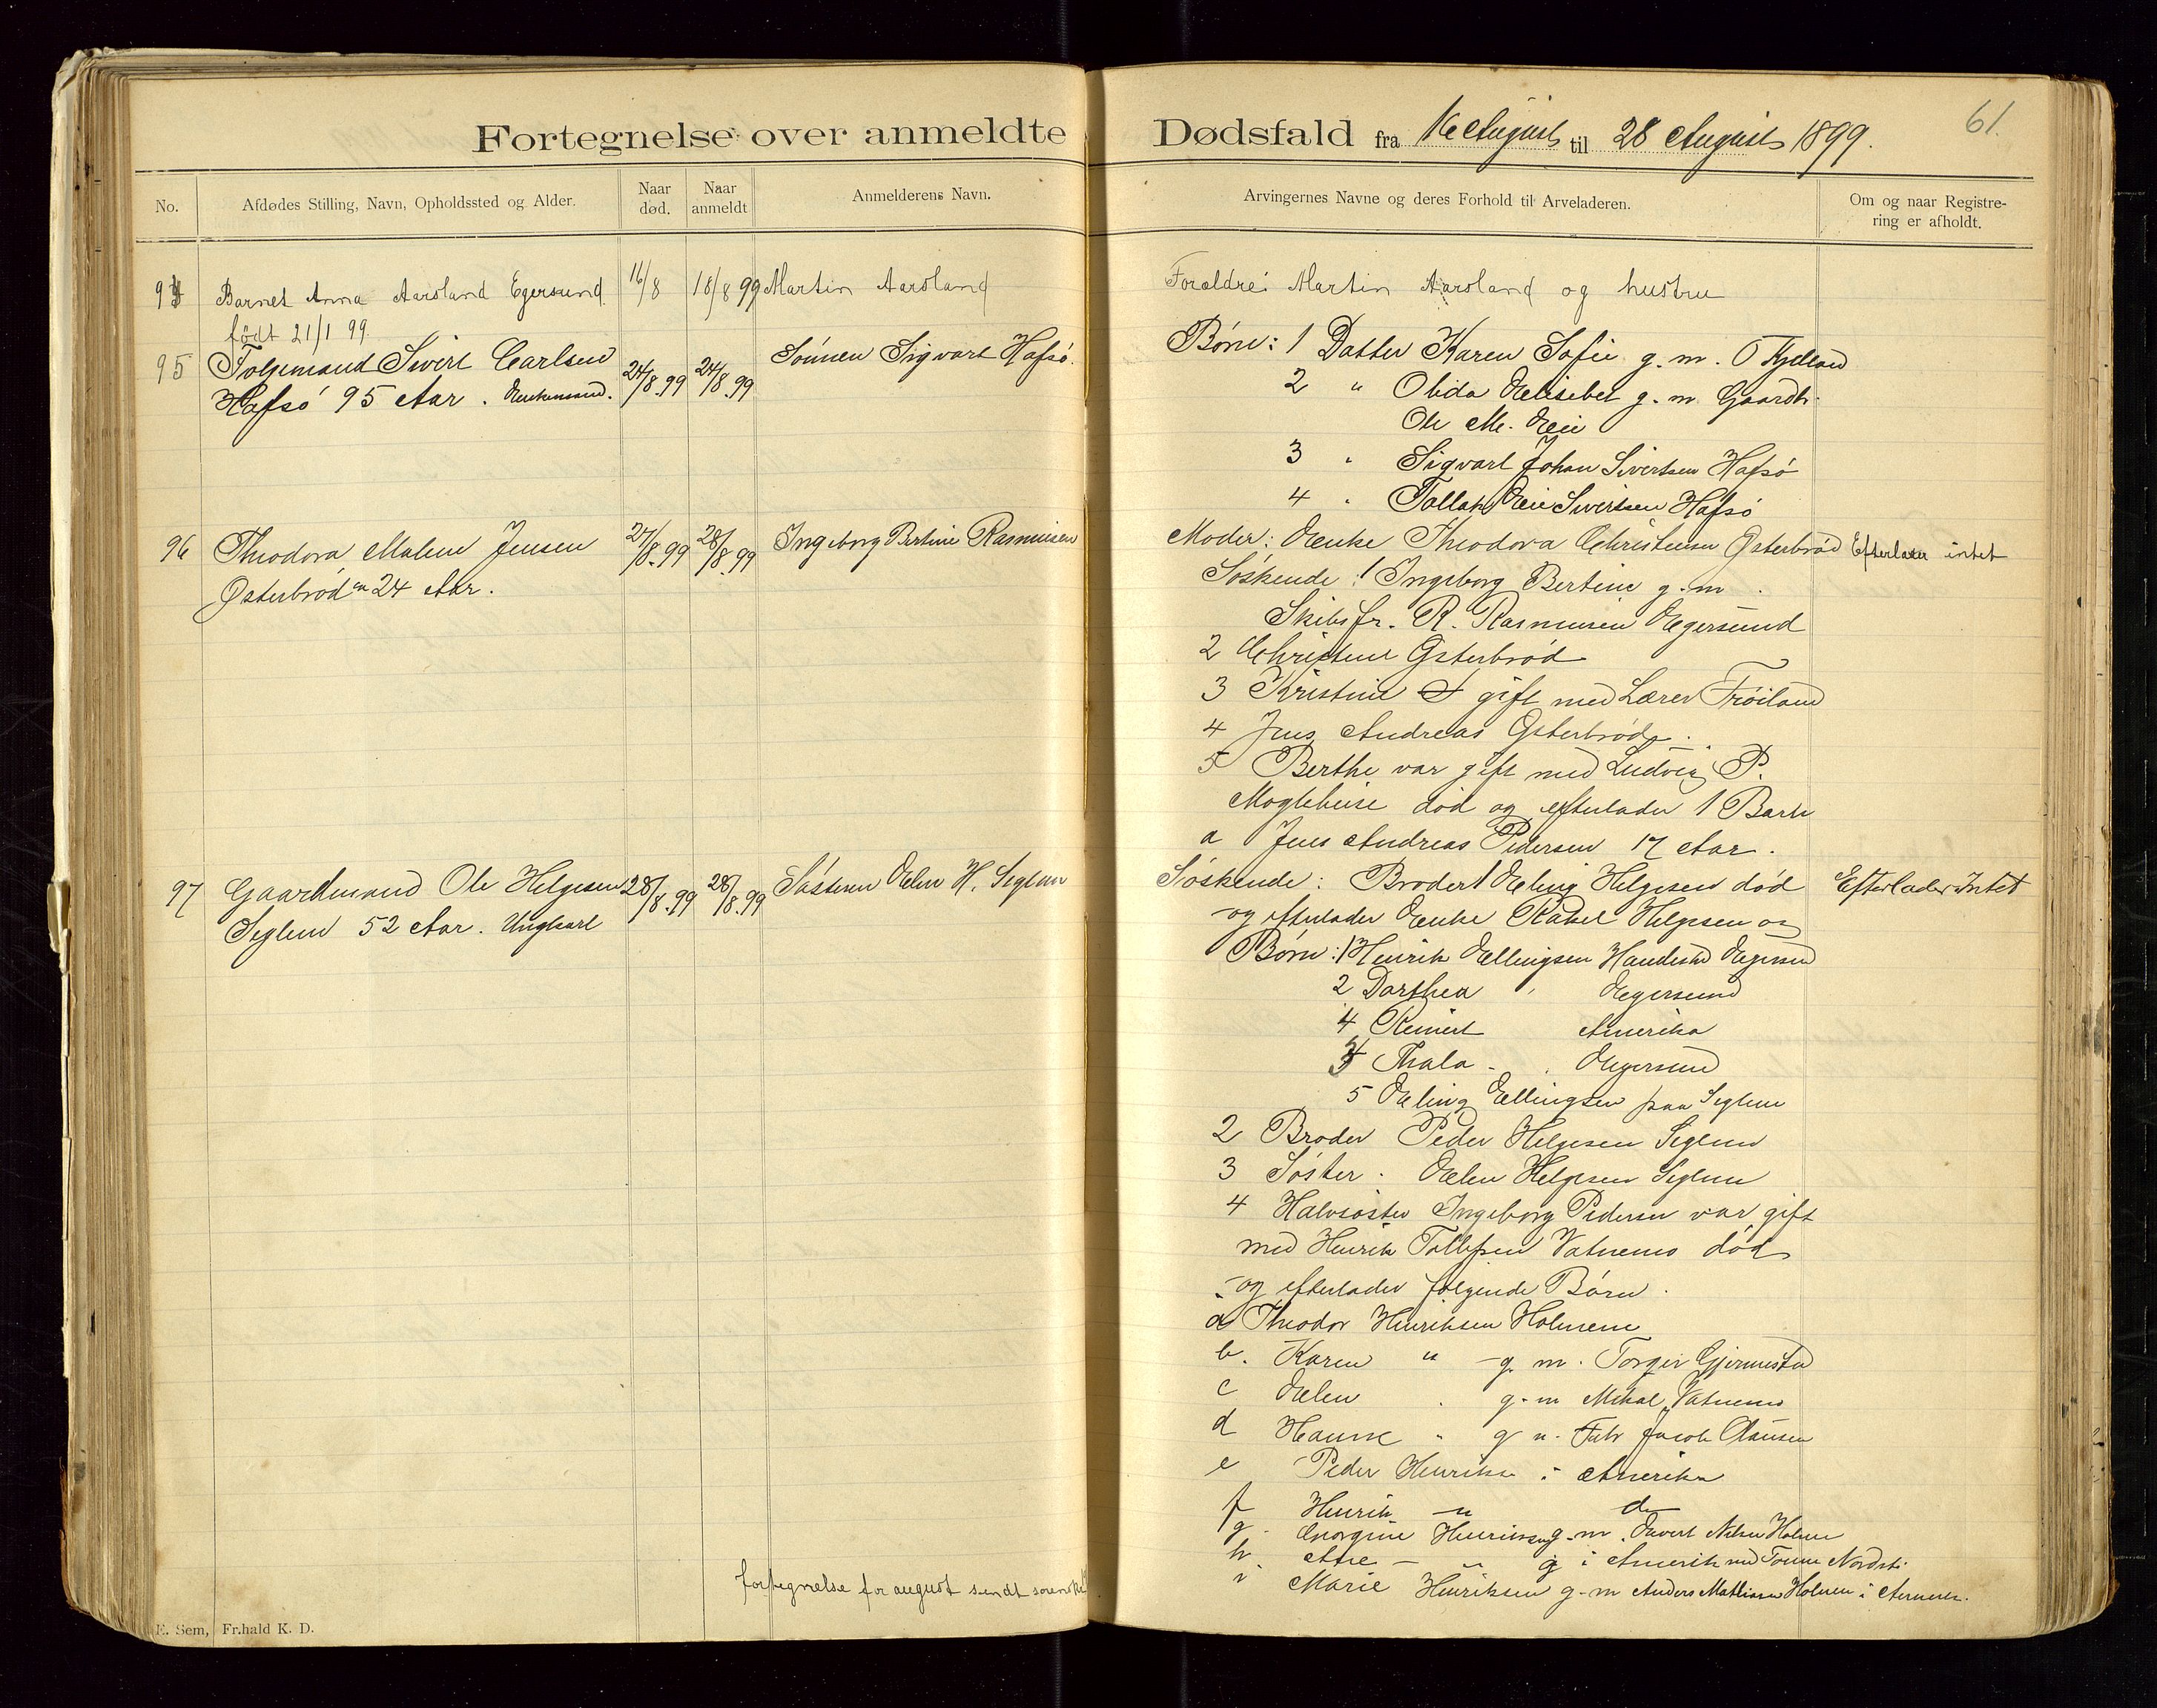 Fortegnelse over anmeldte
Dødsfald fra 16 August til 28 August 1899.
61.
No.
Afdødes Stilling, Navn, Opholdssted og Alder.
Naar død.
Naar anmeldt
Anmelderens Navn.
Arvingernes Navne og deres Forhold til Arveladeren.
Om og naar Registre-
ring er afholdt.
94 Barnet Anna Aarsland Egersund 16/8 18/8 99 Martin Aarsland
født 21/1 99.
Forældre: Martin Aarsland og hustru
95 Folgemand Sivert Carlsen 24/8.99 24/8.99 Sönnen Sigvart Hafsö.
Hafsö 95 Aar. Enkemand.
Børn: 1 Datter Karen Sofie g. m. O Kjelland
2 " Olida Elisebet g. m. Gaardb.
Ole M. Eie
3 " Sigvart Johan Sivertsen Hafsö
4 " Tollak Eie Sivertsen Hafsö
96 Theodora Malene Jensen 27/8.99 28/8.99 Ingeborg Bertine Rasmussen
Østerbröd 24 Aar.
Moder: Enke Theodora Christensen Østerbröd Efterlader intet
Söskende: 1 Ingeborg Bertine g. m
Skibsfr. R. Rasmussen Egersund
2 Christine Østerbröd
3 Kristine gift med Lærer Tröiland
4 Jens Andreas Østerbröd.
5 Berthe var gift med Ludvig P.
Mogleheise död og efterlader 1 Barn
a Jens Andreas Pedersen 17 Aar.
97 Gaardmand Ole Helgesen 28/8.99 28/8.99 Søsteren Elen H. Seglem
Seglem 52 Aar. Ungkarl
Söskende: Broder 1 Eling Helgesen död Efterlader Intet
og efterlader Enke Rakel Helgesen og
Børn: 1 Henrik Ellingsen Handelsmd Egersund
2 Dorthea " Egersund
4 Reinert Amerika
3 Thala " Egersund
5 Eling Ellingsen paa Seglem
2 Broder Peder Helgesen Seglem
3 Söster. Elen Helgesen Seglem
4 Halvsöster Ingeborg Pedersen var gift
med Henrik Tollefsen Vatnemo död
og efterlader følgende Børn.
a Theodor Henriksen Holmene
b. Karen " g. m. Torger Gjermestad
c Elen " g. m Mikal Vatnemo
d Hanne " g m. Jacob Clausen
e Peder Henriksen i Amerika
f Henrik " do
g. Georgine Henriksen g. m. Sivert Nilsen Holmen
h. Ane " g i Amerika med Tonne
i Marie Henriksen g. m Anders Mathiasen Holmen i Amerika.
fortegnelse for august sendt sorensk
E. Sem, Fr.hald K. D.